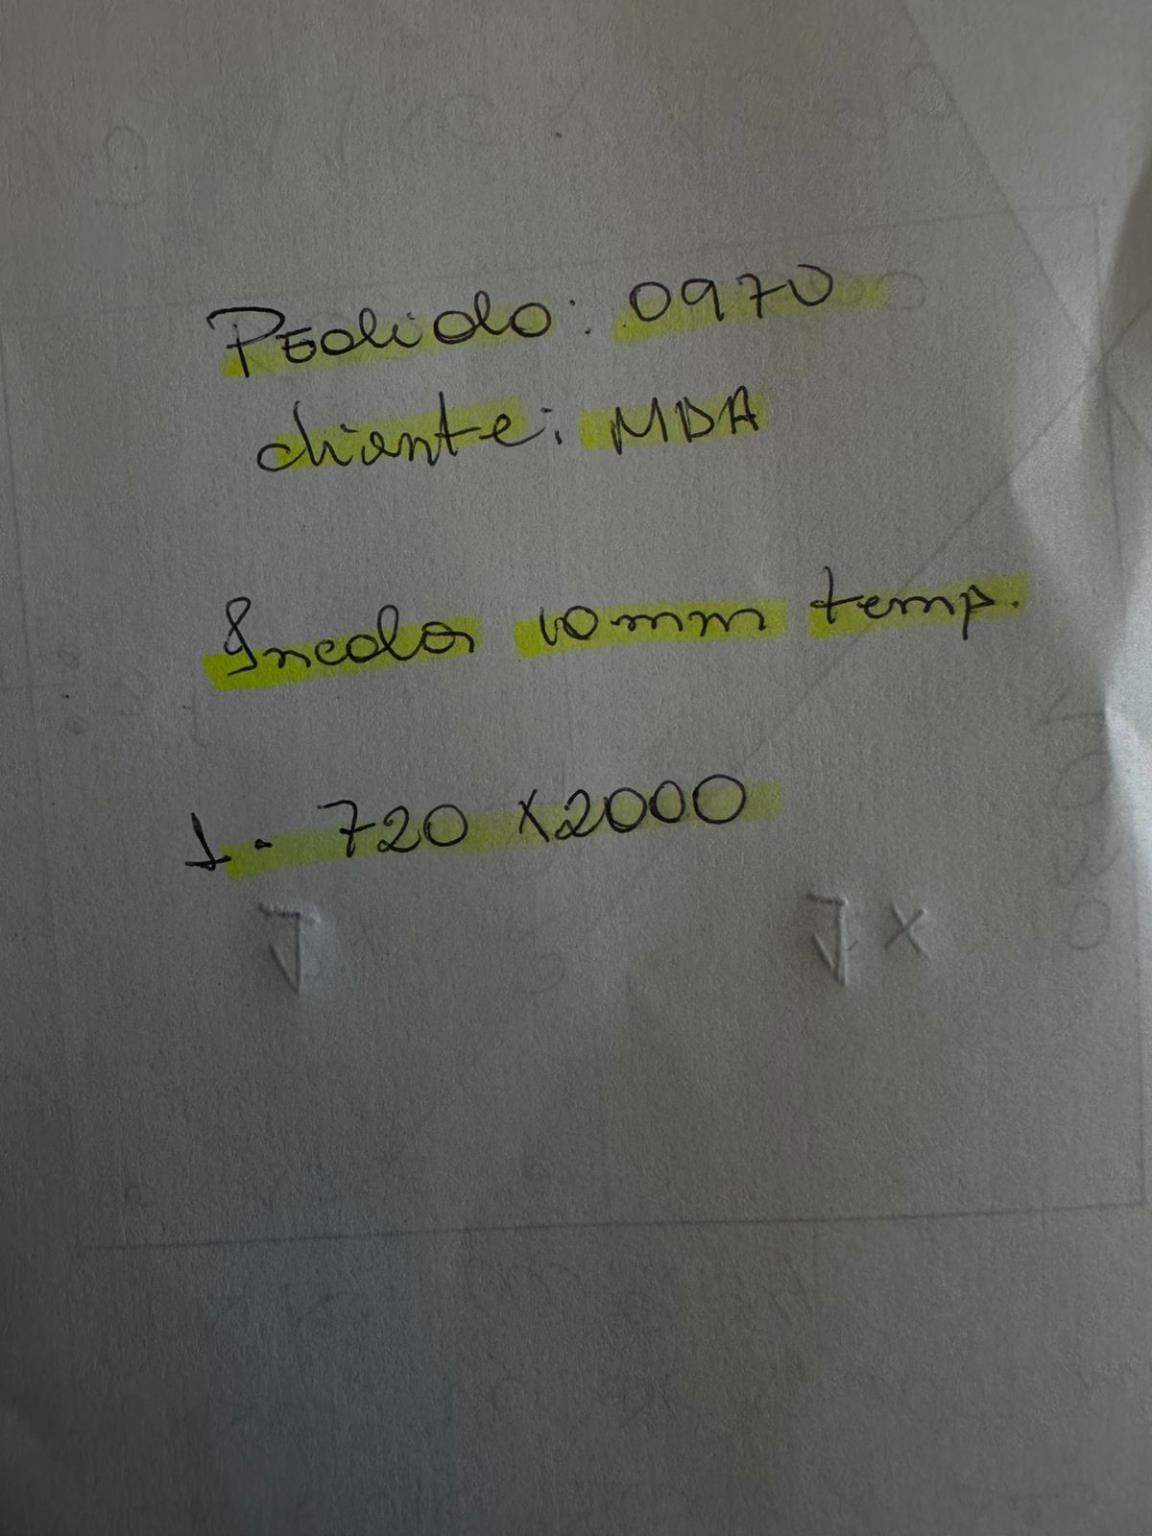 Pedido: 0970
cliente: MDA
Incolor 10mm temp.
1 - 720 x 2000